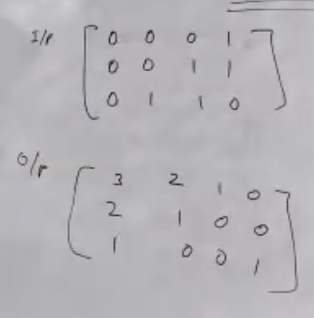 I/P
0 0 0 1
0 0 1 1
0 1 1 0
O/P
3 2 1 0
2 1 0 0
1 0 0 1